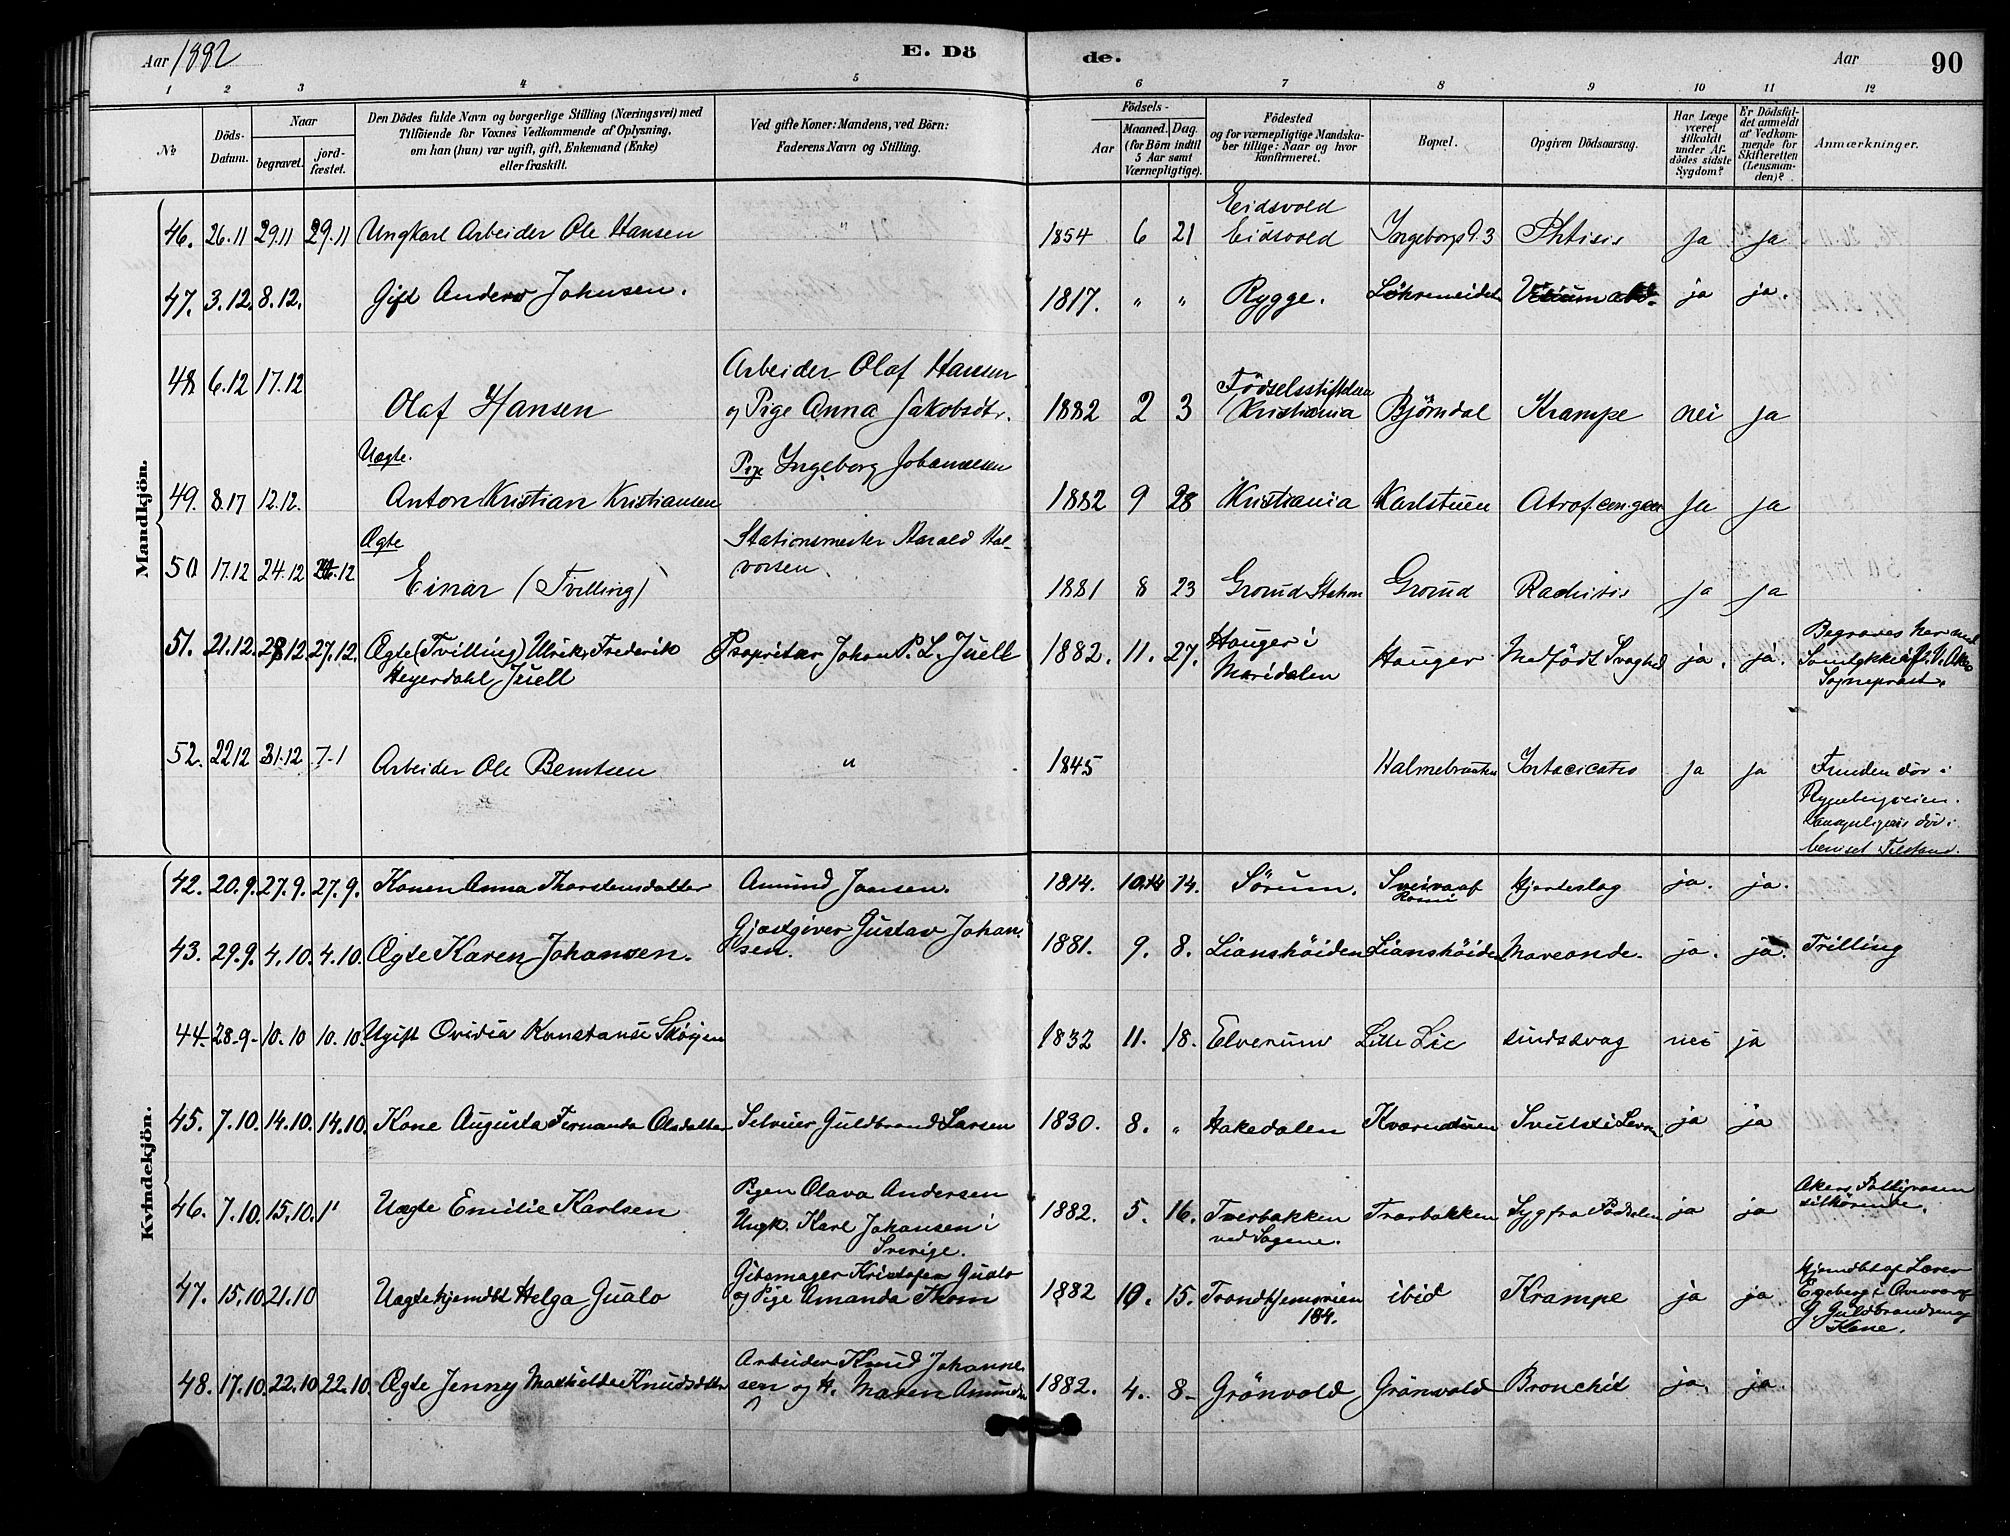 Aar 1882
E. Dö
de.
Aar
90
1 2 3 4 5 6 7 8 9 10 11 12
No
Döds-Datum.
Naar
begravet.
jord-fæstet.
Den Dödes fulde Navn og borgerlige Stilling (Næringsvei) med
Tilföiende for Voxnes Vedkommende af Oplysning,
om han (hun) var ugift, gift, Enkemand (Enke)
eller fraskilt.
Ved gifte Koner: Mandens, ved Börn:
Faderens Navn og Stilling.
Födsels-
Aar
Maaned. Dag.
(for Börn indtil
5 Aar samt
Værnepligtige).
Födested
og for værnepligtige Mandska-
ber tillige: Naar og hvor
konfirmeret.
Bopæl.
Opgiven Dödsaarsag.
Har Læge
været
tilkaldt
under Af-
dödes sidste
Sygdom?
Er Dödsfal-
det anmeldt
af Vedkom-
mende for
Skifteretten
(Lensman-
den)?
Anmærkninger.
Mandkjön.
Eidsvold
46. 26.11 29.11 29.11 Ungkarl Arbeider Ole Hansen " 1854 6 21 Eidsvold Ingeborgs g. 3 Phtisis ja ja
47. 3.12. 8.12. Gift Anders Johnsen. 1817. " " Rygge. ja ja.
Arbeider Olaf Hansen
48 6.12 17.12 Olaf Hansen og Pige Anna Jakobsdtr. 1882 2 3 Födselsstiftelsen Kristiania Björndal Krampe nei ja
Uægte. Pige Ingeborg Johannesen
49. 8.17 12.12. Anton Kristian Kristiansen 1882 9 28 Kristiania Karlstuen ja ja
Ægte Stationsmester Harald Hal-
50 17.12 24.12 Einar (Tvilling) vorsen. 1881 8 23 Grorud Station Grorud Rachitis ja ja
51. 21.12. 28.12 27.12. Ægte (Tvilling) Ulrik Frederik Proprietær Johan P. L. Juell 1882. 11. 27. Hauger i Hauger Medfödt Svaghed ja. ja.
Heyerdahl Juell Maridalen
Begraves her med
Samtykke af V. Aker
Sognepræst.
52. 22.12 31.12 7-1 Arbeider Ole Berntsen " 1845 Halmebraaten ja ja Funden död i
Ryenbergveien.
död i
beruset Tilstand.
Kvindekjön.
42. 20.9. 27.9. 27.9. Konen Anna Thorstensdatter Amund Jansen. 1814. 10. 14. Sörum. Hjerteslag ja. ja.
Gjæstgiver Gustav Johan-
43. 29.9. 4.10. 4.10. Ægte Karen Johansen. sen. 1881. 9. 8. Lianshöiden Lianshöiden Maveonde. ja. ja. Trilling
44. 28-9- 10.10 10.10. Ugift Ovidia Konstanse Skögen 1832 11. 18. Elverum Lille Lie sindssvag nei ja
45. 7.10. 14.10. 14.10. Kone Augusta Fernanda Olsdatter Selveier Guldbrand Larsen 1830. 8. " Hakedalen Kværnstuen Svulst i Leveren ja ja
Pigen Olava Andersen
46. 7.10. 15.10. 1" Uægte Emilie Karlsen Ungk. Karl Johansen i 1882. 5. 16. Tverbakken Tverbakken Syg fra Födselen ja ja
Sverige. ved Sagene.
Akers Fattigvæsen
tilhörende.
Gibsmager Kristofer Gualo
47. 15.10. 21.10 Uægte kjendt Helga Gualo og Pige Amanda Thom 1882 10. 15. Trondhjemsveien ibid Krampe ja ja
184.
Hjemdöbt af Lærer
Egeberg i Overvær af
G. Guldbrandsens
Kone.
Arbeider Knud Johanne-
48. 17.10. 22.10 22.10. Ægte Jenny Mathilde Knudsdtter sen og H. Maren Amundsen 1882. 4. 8- Grönvold Grönvold Bronchit ja. ja.